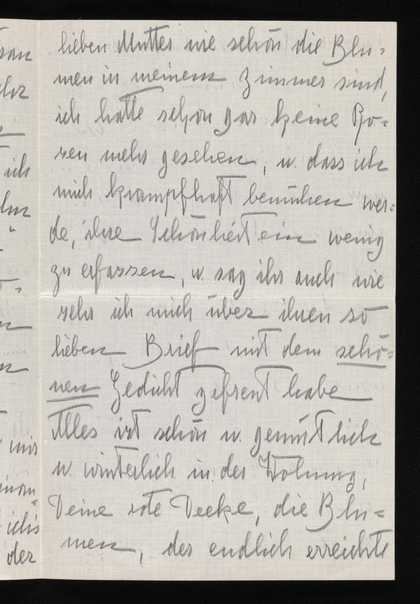 lieben Mutter wie schön die Blu=
men in meinem Zimmer sind,
ich hatte schon gar keine Ro=
sen mehr gesehen, u. dass ich
mich krampfhaft bemühen wer=
de, ihre Schönheit ein wenig
zu erfassen, u. sag ihr auch wie
sehr ich mich über ihren so
lieben Brief mit dem schö=
nen Gedicht gefreut habe
Alles ist schön u. gemütlich
u. winterlich in der Wohnung,
Deine rote Decke, die Blu=
men, der endlich erreichte
ich
mir
der